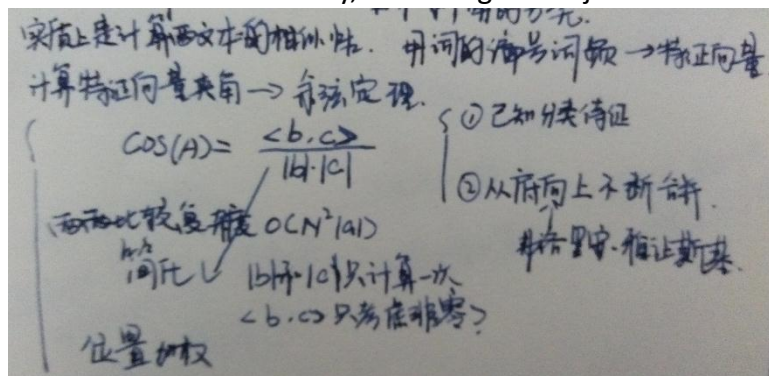 实质上是计算两文本的相似性. 用词的编号词频→特征向量
计算特征向量夹角→余弦定理.
COS(A)= <b,c> / |b|·|c|
①已知分类特征
②从底向上不断合并.
两两比较复杂度 O(N²|a|)
简化 |b|和|c|只计算一次
<b,c>只考虑非零?
位置加权